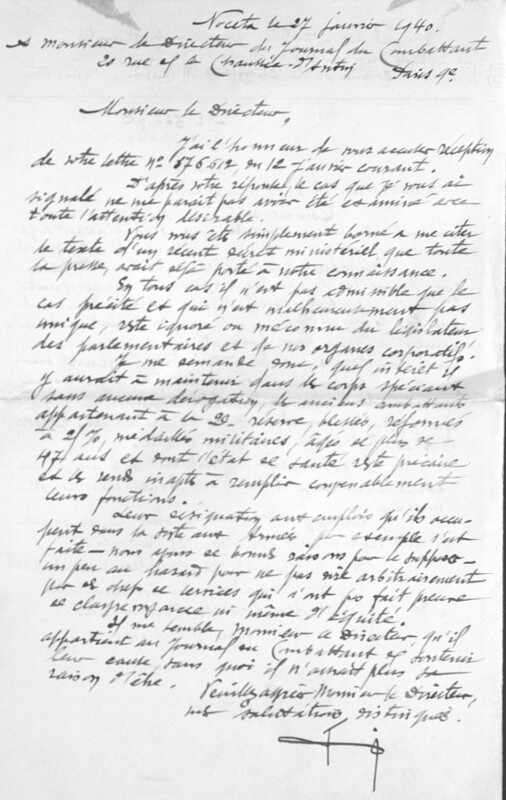 Noceta le 27 janvier 1940.
A monsieur le Directeur du Journal du Combattant
20 rue de la Chaussée-d'Antin Paris 9e
Monsieur le Directeur,
J'ai l'honneur de vous accuser réception
de votre lettre n° 876.512, du 12 janvier courant.
D'après votre réponse, le cas que je vous ai
signalé ne me paraît pas avoir été examiné avec
toute l'attention désirable.
Vous vous êtes simplement borné a me citer
le texte d'un récent décret ministériel que toute
la presse, avait déjà porté à notre connaissance.
En tous cas il n'est pas admissible que le
cas précité et qui n'est malheureusement pas
unique, reste ignoré ou méconnu du législateur
des parlementaires et de nos organes corporatifs.
Je me demande donc, quel intérêt il
y aurait à maintenir dans les corps spéciaux
sans aucune dérogation, les anciens combattants
appartenant à la 2e réserve, blessés, réformés
à 2/%, médaillés militaires, âgés de plus de
47 ans et dont l'état de santé reste précaire
et les rends inapte à remplir convenablement
leurs fonctions.
Leur désignation aux emplois qu'ils occu-
pent dans la aux Armées par exemple s'est
faite - nous avons de bonnes raisons pour le supposer -
un peu au hasard pour ne pas dire arbitrairement
par des chefs de services qui n'ont pas fait preuve
de clairvoyance ni même d'équité.
Il me semble, Monsieur le Directeur, qu'il
appartient au Journal du Combattant de soutenir
leur cause, sans quoi il n'aurait plus sa
raison d'être.
Veuillez agréer Monsieur le Directeur,
mes salutations distinguées.